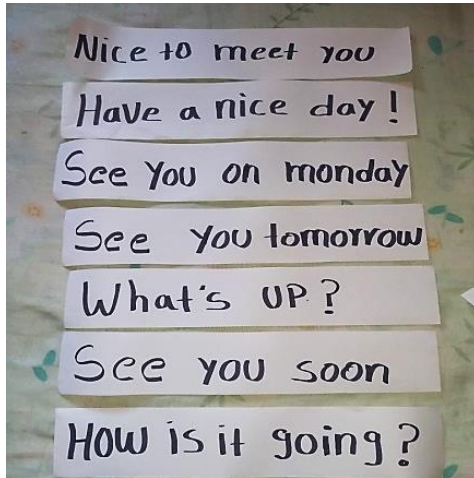 Nice to meet you
Have a nice day!
See You on monday
See you tomorrow
What's UP?
See you soon
How is it going?